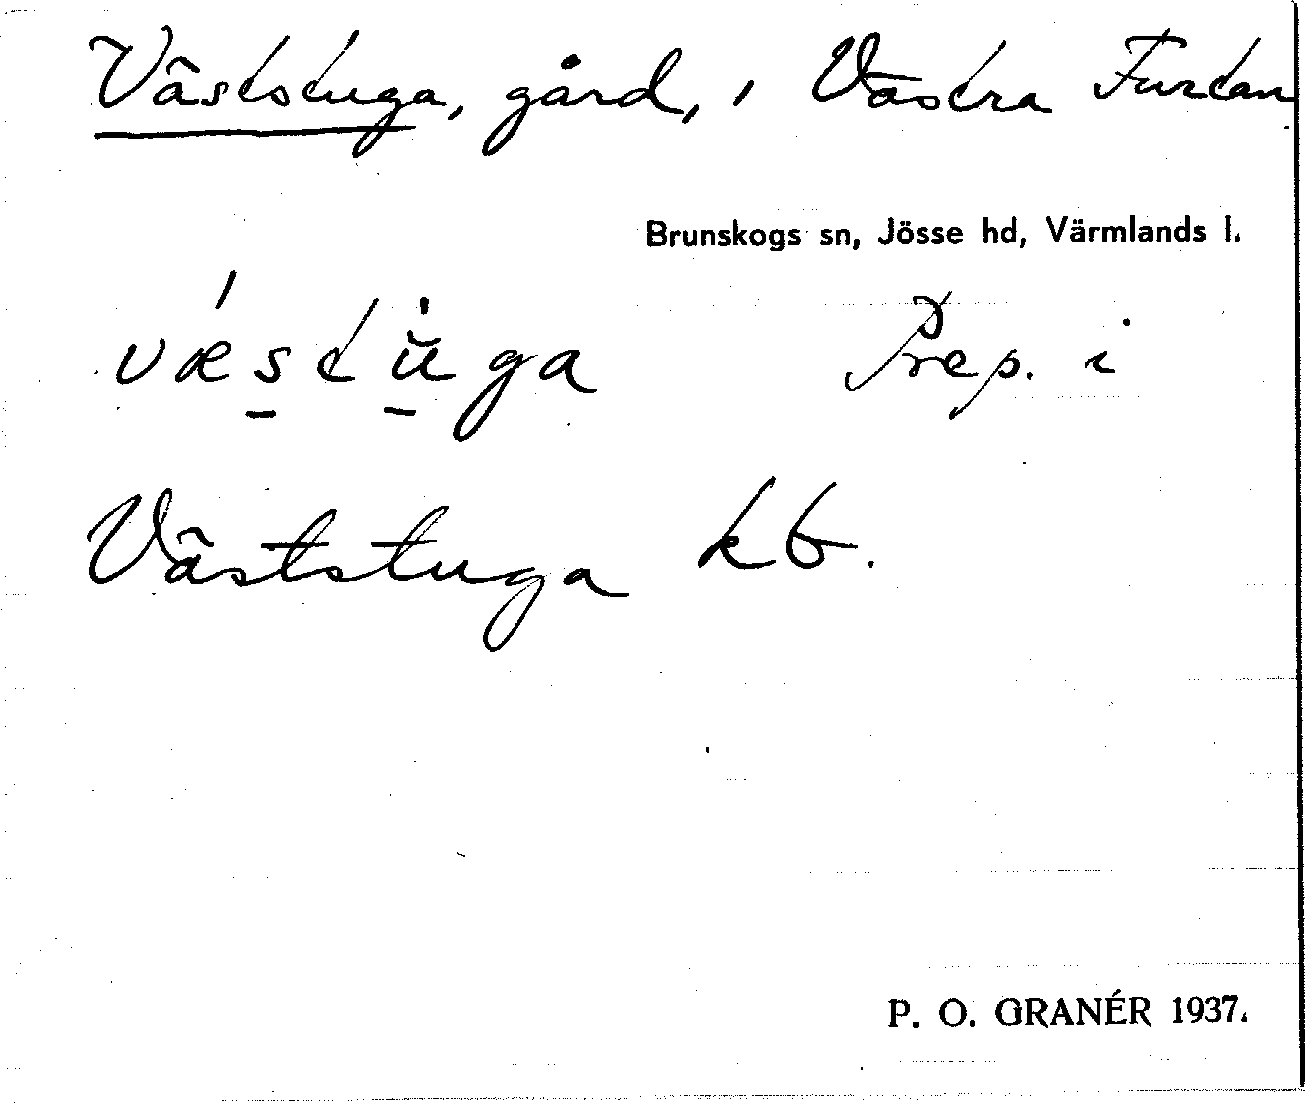 Väststuga, gård, i Västra Furtan
Brunskogs sn, Jösse hd, Värmlands l.
væstuga Prep. i
Väststuga kb.
P. O. GRANÉR 1937.